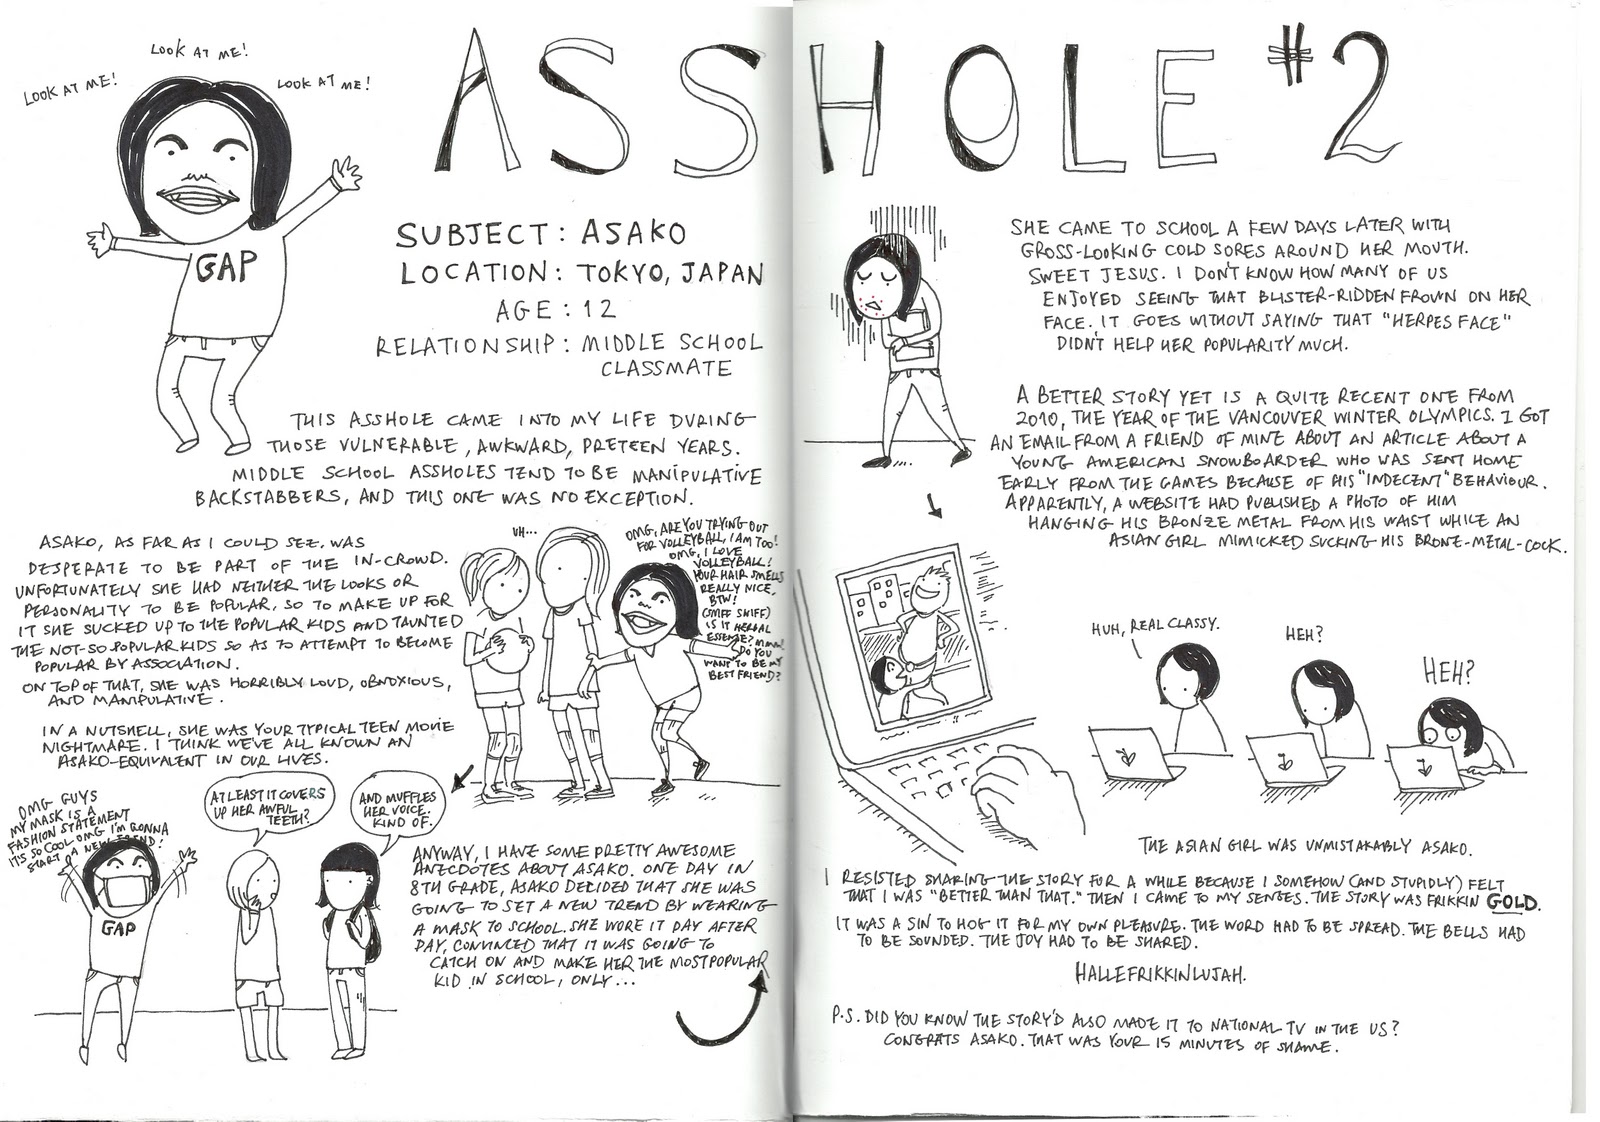 LOOK AT ME!
LOOK AT ME!
LOOK AT ME!
GAP
ASSHOLE #2
SUBJECT: ASAKO
LOCATION: TOKYO, JAPAN
AGE: 12
RELATIONSHIP: MIDDLE SCHOOL
CLASSMATE
THIS ASSHOLE CAME INTO MY LIFE DURING
THOSE VULNERABLE, AWKWARD, PRETEEN YEARS.
MIDDLE SCHOOL ASSHOLES TEND TO BE MANIPULATIVE
BACKSTABBERS, AND THIS ONE WAS NO EXCEPTION.
ASAKO, AS FAR AS I COULD SEE, WAS
DESPERATE TO BE PART OF THE IN-CROWD.
UNFORTUNATELY SHE HAD NEITHER THE LOOKS OR
PERSONALITY TO BE POPULAR, SO TO MAKE UP FOR
IT SHE SUCKED UP TO THE POPULAR KIDS AND TAUNTED
THE NOT-SO-POPULAR KIDS SO AS TO ATTEMPT TO BECOME
POPULAR BY ASSOCIATION.
ON TOP OF THAT, SHE WAS HORRIBLY LOUD, OBNOXIOUS,
AND MANIPULATIVE.
IN A NUTSHELL, SHE WAS YOUR TYPICAL TEEN MOVIE
NIGHTMARE. I THINK WE'VE ALL KNOWN AN
ASAKO-EQUIVALENT IN OUR LIVES.
UH...
OMG, ARE YOU TRYING OUT
FOR VOLLEYBALL, I AM TOO!
OMG, I LOVE
VOLLEYBALL!
YOUR HAIR SMELLS
REALLY NICE,
BTW!
(SNIFF SNIFF)
IS IT HERBAL
ESSENCE? MMM!
DO YOU
WANT TO BE MY
BEST FRIEND?
OMG GUYS
MY MASK IS A
FASHION STATEMENT
IT'S SO COOL OMG I'M GONNA
START A NEW TREND!
GAP
AT LEAST IT COVERS
UP HER AWFUL
TEETH?
AND MUFFLES
HER VOICE.
KIND OF.
ANYWAY, I HAVE SOME PRETTY AWESOME
ANECDOTES ABOUT ASAKO. ONE DAY IN
8TH GRADE, ASAKO DECIDED THAT SHE WAS
GOING TO SET A NEW TREND BY WEARING
A MASK TO SCHOOL. SHE WORE IT DAY AFTER
DAY, CONVINCED THAT IT WAS GOING TO
CATCH ON AND MAKE HER THE MOST POPULAR
KID IN SCHOOL, ONLY...
SHE CAME TO SCHOOL A FEW DAYS LATER WITH
GROSS-LOOKING COLD SORES AROUND HER MOUTH.
SWEET JESUS. I DON'T KNOW HOW MANY OF US
ENJOYED SEEING THAT BLISTER-RIDDEN FROWN ON HER
FACE. IT GOES WITHOUT SAYING THAT "HERPES FACE"
DIDN'T HELP HER POPULARITY MUCH.
A BETTER STORY YET IS A QUITE RECENT ONE FROM
2010, THE YEAR OF THE VANCOUVER WINTER OLYMPICS. I GOT
AN EMAIL FROM A FRIEND OF MINE ABOUT AN ARTICLE ABOUT A
YOUNG AMERICAN SNOWBOARDER WHO WAS SENT HOME
EARLY FROM THE GAMES BECAUSE OF HIS "INDECENT" BEHAVIOUR.
APPARENTLY, A WEBSITE HAD PUBLISHED A PHOTO OF HIM
HANGING HIS BRONZE METAL FROM HIS WAIST WHILE AN
ASIAN GIRL MIMICKED SUCKING HIS BRONZE-METAL-COCK.
HUH, REAL CLASSY.
HEH?
HEH?
THE ASIAN GIRL WAS UNMISTAKABLY ASAKO.
I RESISTED SHARING THE STORY FOR A WHILE BECAUSE I SOMEHOW (AND STUPIDLY) FELT
THAT I WAS "BETTER THAN THAT." THEN I CAME TO MY SENSES. THE STORY WAS FRIKKIN GOLD.
IT WAS A SIN TO HOG IT FOR MY OWN PLEASURE. THE WORD HAD TO BE SPREAD. THE BELLS HAD
TO BE SOUNDED. THE JOY HAD TO BE SHARED.
HALLEFRIKKINLUJAH.
P.S. DID YOU KNOW THE STORY'D ALSO MADE IT TO NATIONAL TV IN THE US?
CONGRATS ASAKO. THAT WAS YOUR 15 MINUTES OF SHAME.